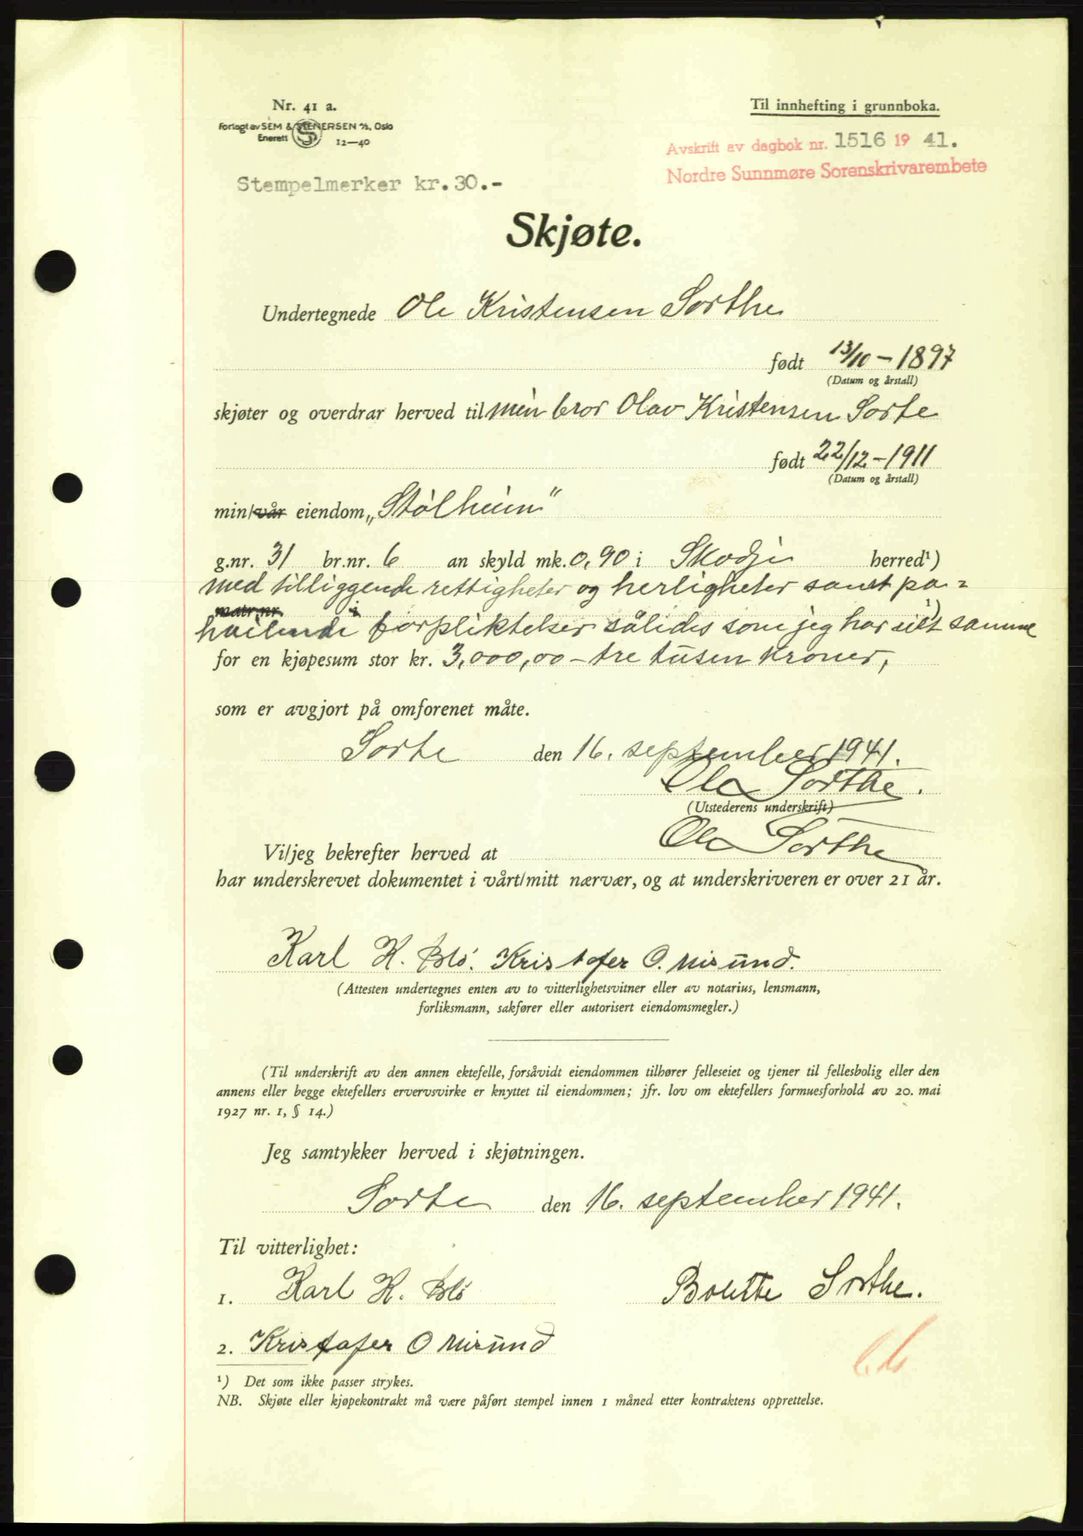 Nr. 41 a.
Forlagt av SEM & STENERSEN A/S, Oslo
Enerett 12—40
Til innhefting i grunnboka.
Avskrift av dagbok nr. 1516 19 41.
Nordre Sunnmøre Sorenskrivarembete
Stempelmerker kr. 30.-
Skjøte.
Undertegnede Ole Kristensen Sorthe
født 13/10 – 1897
(Datum og årstall)
skjøter og overdrar herved til min bror Olav Kristensen Sorte
født 22/12 – 1911
(Datum og årstall)
min/vår eiendom „Stølheim"
g.nr. 31 br.nr. 6 an skyld mk. 0,90 i Skodje herred¹)
med tilliggende rettigheter og herligheter samt pa=
matr.nr. i ¹)
hvilende forpliktelser således som jeg har eiet samme
for en kjøpesum stor kr. 3,000,00 – tre tusen kroner,
som er avgjort på omforenet måte.
Sorte den 16. september 1941.
Ola Sorthe.
(Utstederens underskrift)
Vi/jeg bekrefter herved at Ola Sorthe
har underskrevet dokumentet i vårt/mitt nærvær, og at underskriveren er over 21 år.
Karl K. Blø. Kristofer O. Misund.
(Attesten undertegnes enten av to vitterlighetsvitner eller av notarius, lensmann,
forliksmann, sakfører eller autorisert eiendomsmegler.)
(Til underskrift av den annen ektefelle, forsåvidt eiendommen tilhører felleseiet og tjener til fellesbolig eller den
annens eller begge ektefellers ervervsvirke er knyttet til eiendommen; jfr. lov om ektefellers formuesforhold av 20. mai
1927 nr. 1, § 14.)
Jeg samtykker herved i skjøtningen.
Sorte den 16. september 1941.
Til vitterlighet:
1. Karl K. Blø
Bolette Sorthe.
2. Kristofer O Misund
¹) Det som ikke passer strykes.
NB. Skjøte eller kjøpekontrakt må være påført stempel innen 1 måned etter kontraktens opprettelse.